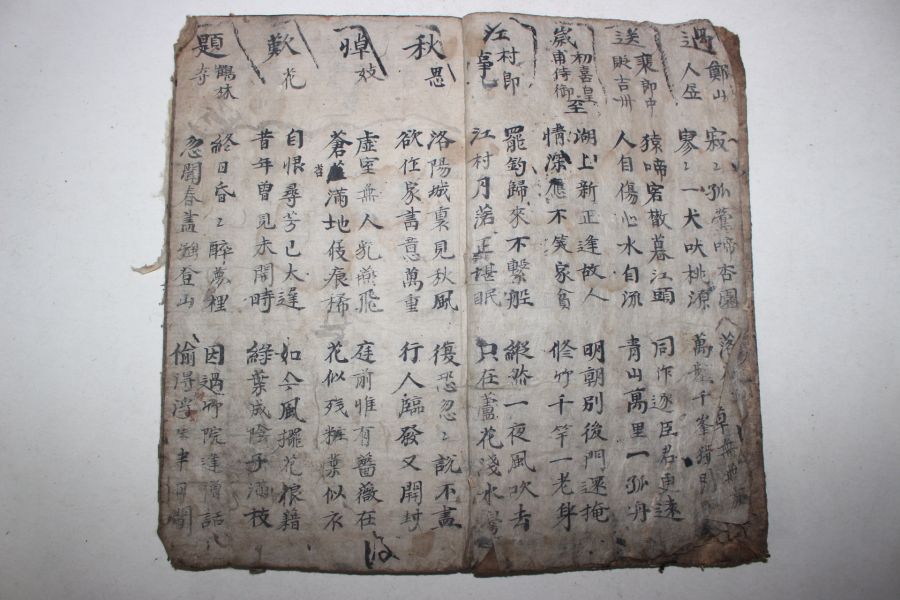 過鄭山人居
寂〻孤鶯啼杏園 落
寥〻一犬吠桃源 萬壑千峯獨
送裴郎中貶吉州
猿啼客散暮江頭 同作逐臣君更遠
人自傷心水自流 青山萬里一孤舟
歲初喜皇甫侍御至
湖上新正逢故人 明朝別後門還掩
情深應不笑家貧 修竹千竿一老身
江村即事
罷釣歸來不繫船 縱然一夜風吹去
江村月落正堪眠 只在蘆花淺水邊
秋思
洛陽城裏見秋風 復恐忽〻說不盡
欲作家書意萬重 行人臨發又開封
悼妓
虛室無人乳燕飛 庭前惟有薔薇在
蒼苔滿地伎痕稀 花似殘粧葉似衣
歎花
自恨尋芳已太遲 如今風擺花狼籍
昔年曾見未開時 綠葉成陰子滿枝
題鶴林寺
終日昏〻醉夢裡 因過竹院逢僧話
忽聞春盡強登山 偷得浮生半日閒